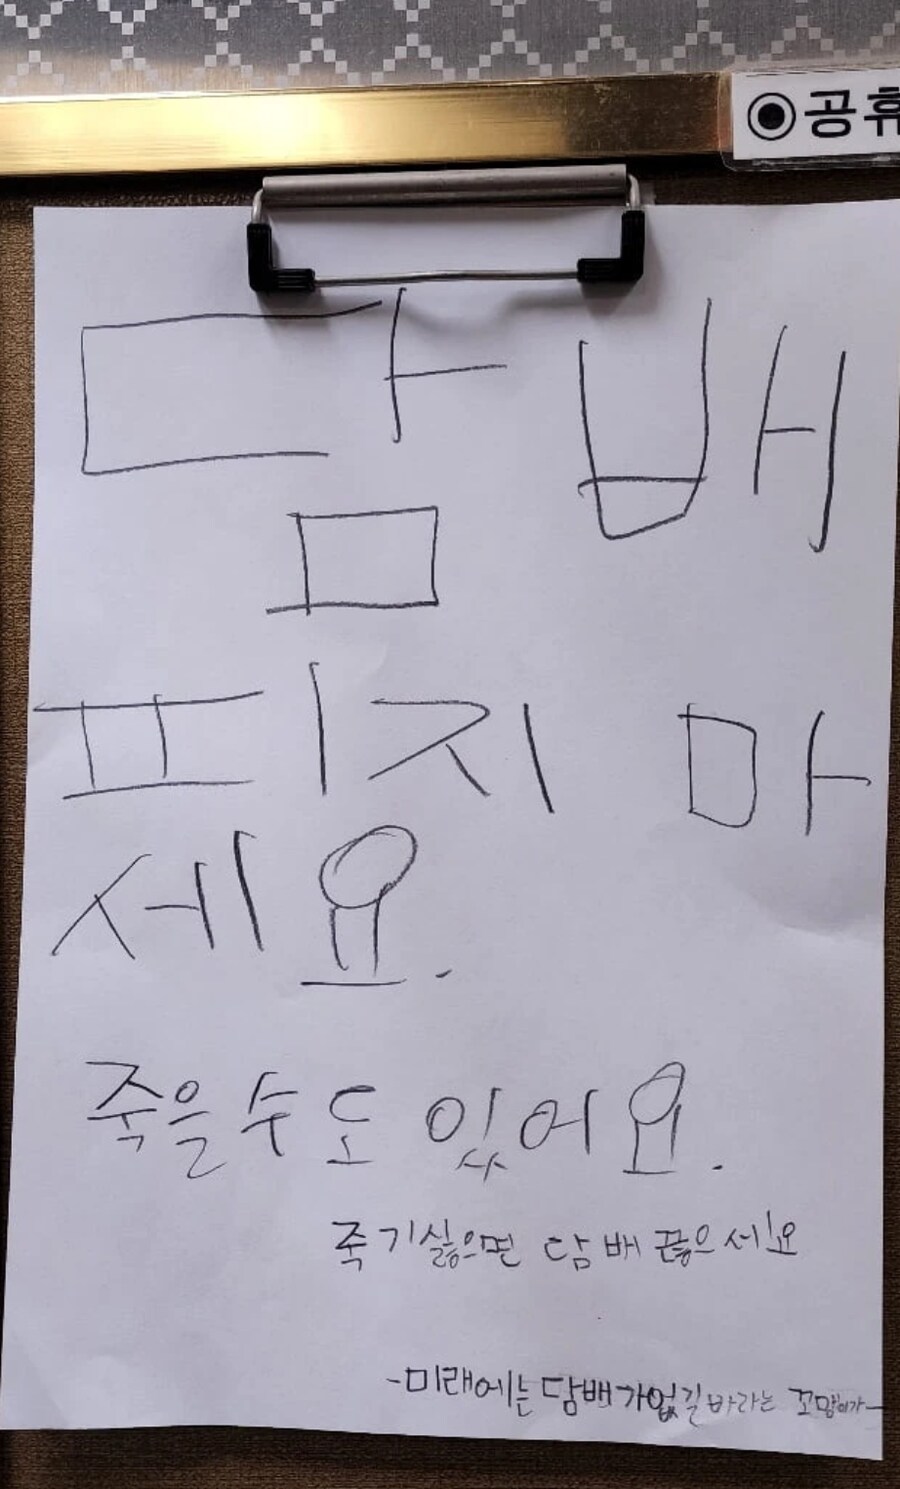 ◉공휴
담배
피지 마
세요.
죽을 수도 있어요.
죽기싫으면 담배 끊으세요
-미래에는 담배가없길바라는 꼬맹이가-